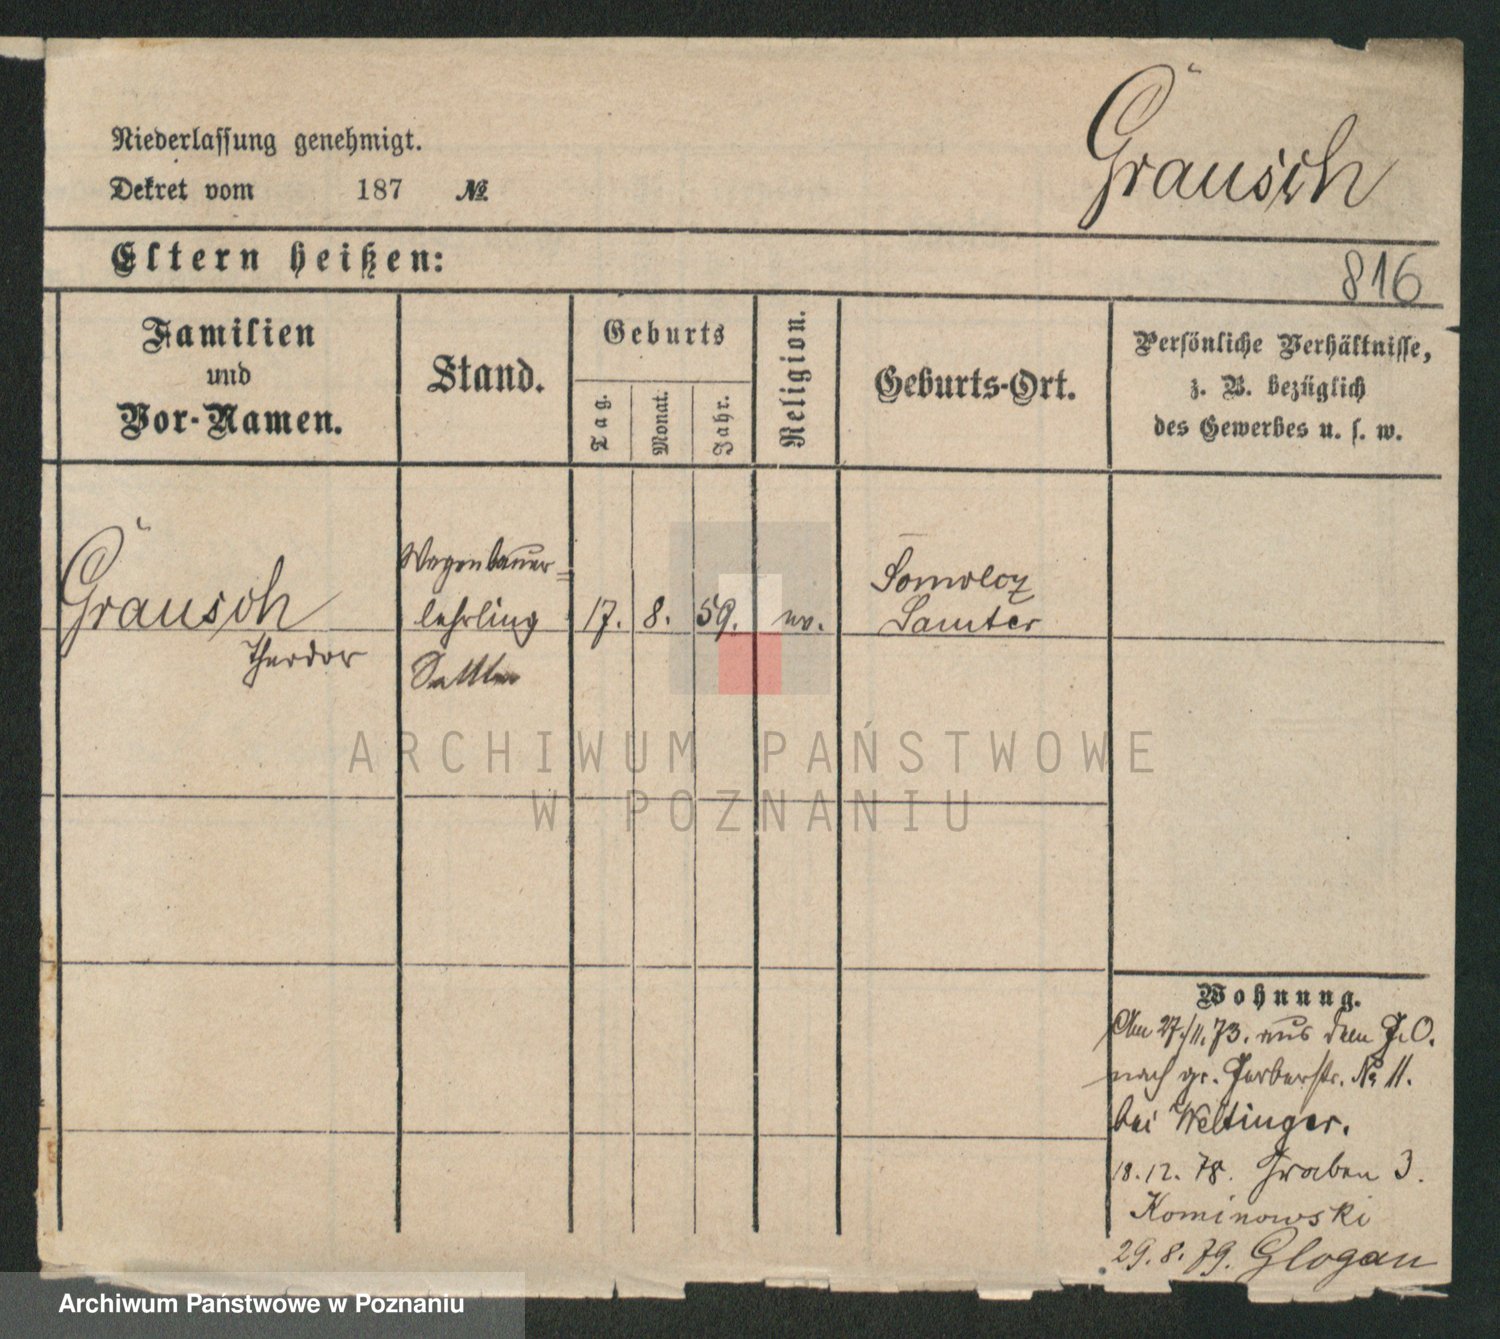 Grausch
Niederlassung genehmigt.
Dekret vom 187 №
Eltern heißen:
816
Familien
und
Vor-Namen.
Stand.
Geburts
Tag.
Monat.
Jahr.
Religion.
Geburts-Ort.
Persönliche Verhältnisse,
z. B. bezüglich
des Gewerbes u. s. w.
Grausch
Theodor
Wagenbauer=
lehrling
Sattler
17. 8. 59. ev.
Samter
ARCHIWUM PAŃSTWOWE
W POZNANIU
Wohnung.
Am 27./11.73. aus dem J.O.
nach gr. Gerberstr. № 11.
bei Weltinger.
18.12.78. Graben 3.
Kominowski
29.8.79. Glogau
Archiwum Państwowe w Poznaniu